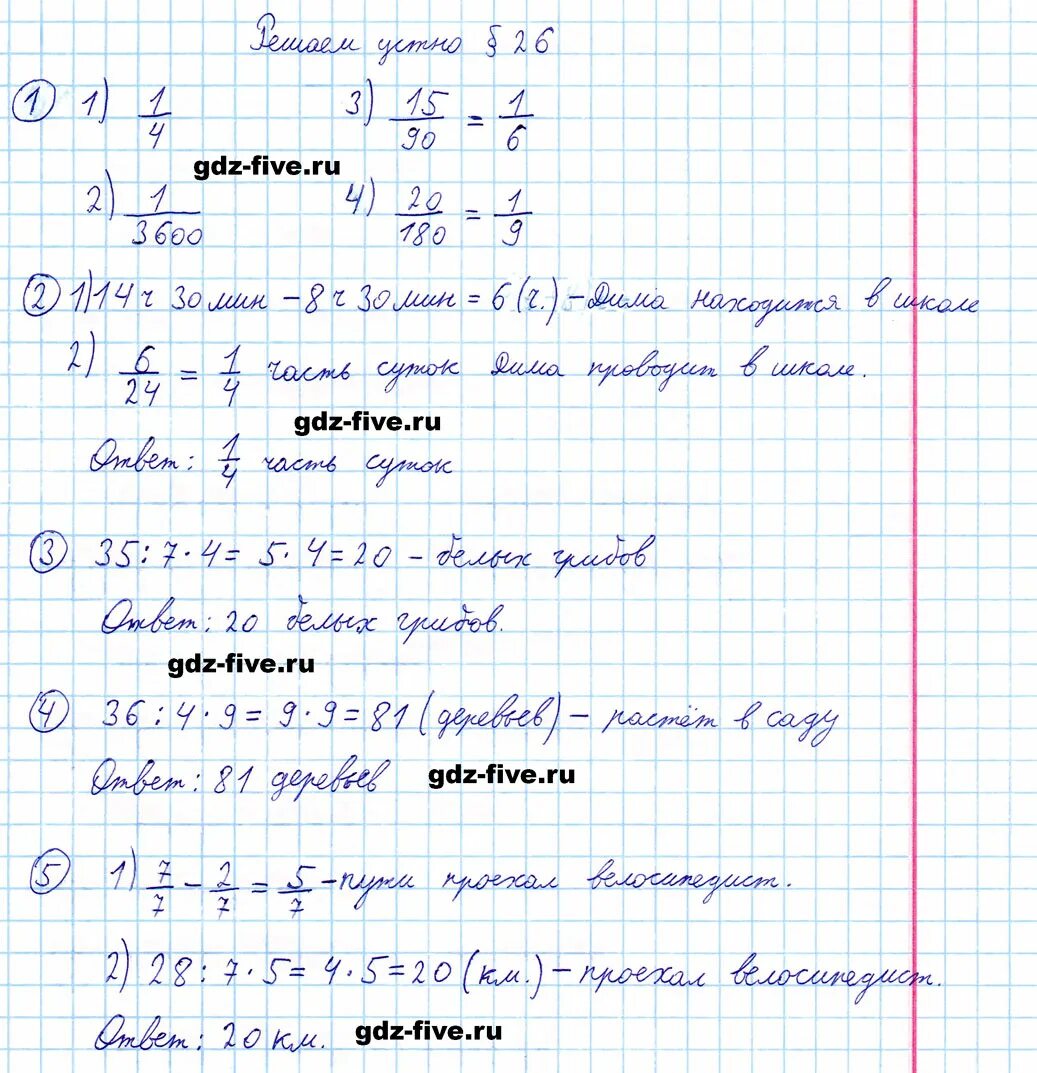 Решаем устно § 26
① 1) 1/4 3) 15/90 = 1/6
gdz-five.ru
2) 1/3600 4) 20/180 = 1/9
② 1) 14 ч 30 мин – 8 ч 30 мин = 6 (ч.) – Дима находится в школе
2) 6/24 = 1/4 часть суток Дима проводит в школе.
gdz-five.ru
Ответ: 1/4 часть суток
③ 35 : 7 · 4 = 5 · 4 = 20 – белых грибов
Ответ: 20 белых грибов.
gdz-five.ru
④ 36 : 4 · 9 = 9 · 9 = 81 (деревьев) – растёт в саду
Ответ: 81 деревьев
gdz-five.ru
⑤ 1) 7/7 – 2/7 = 5/7 – пути проехал велосипедист.
2) 28 : 7 · 5 = 4 · 5 = 20 (км.) – проехал велосипедист.
Ответ: 20 км.
gdz-five.ru